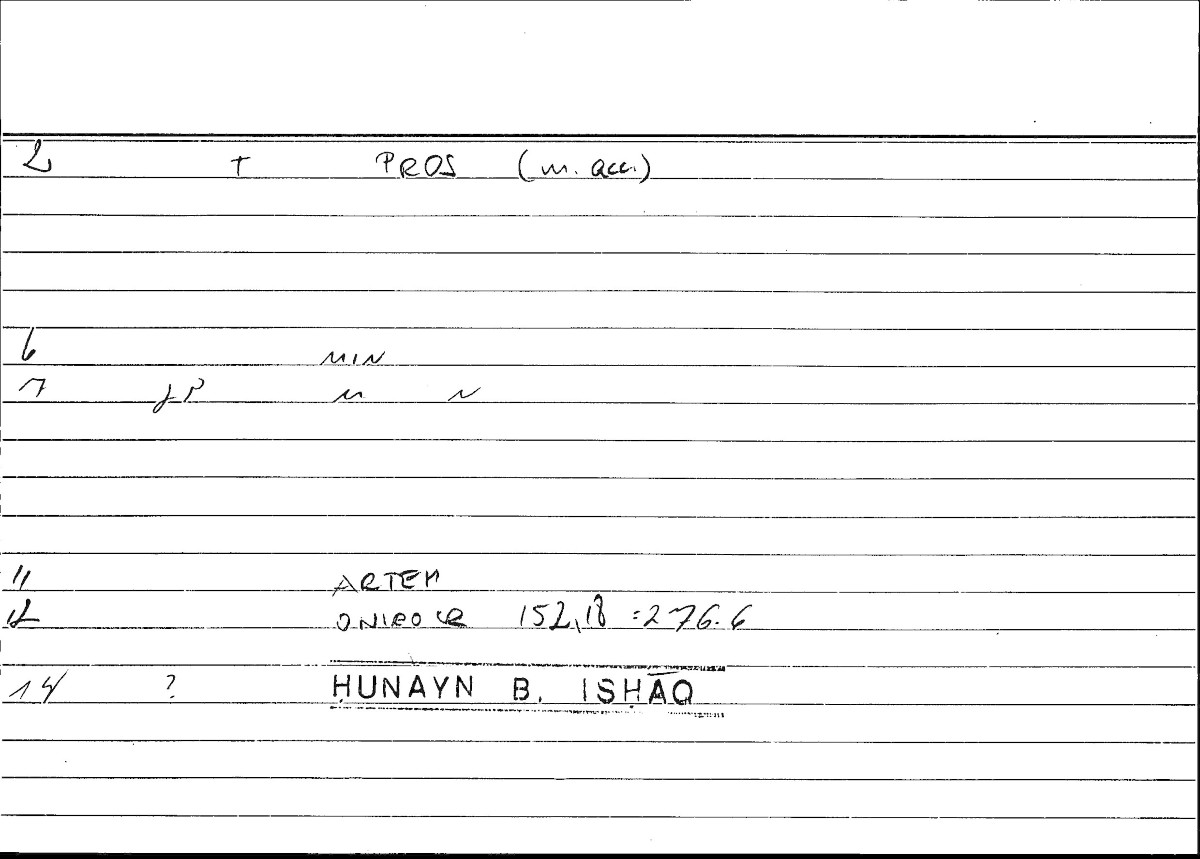 2 T PROS (m. acc.)
6 MIN
7 M N
11 ARTEM
12 ONIROCR 152,18 = 276.6
14 ? ḤUNAYN B. ISḤĀQ